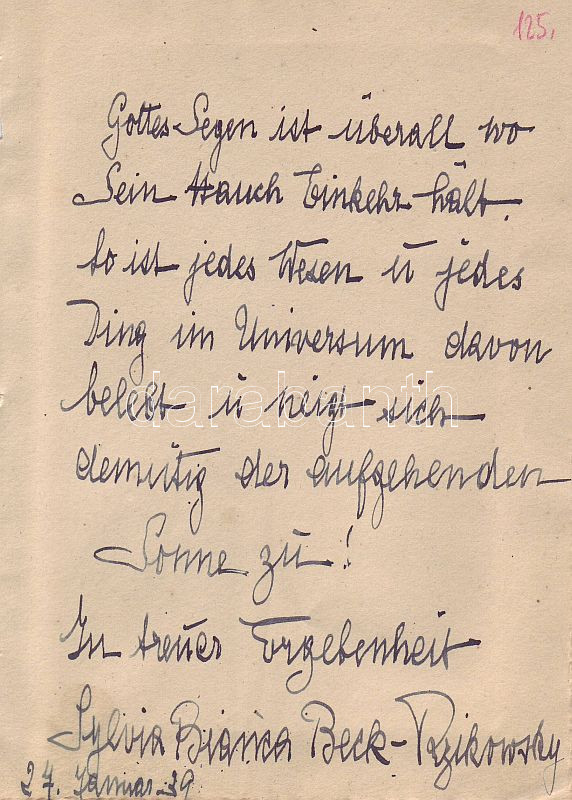 125.
Gottes Segen ist überall wo
Sein Hauch Einkehr hält.
So ist jedes Wesen u jedes
Ding im Universum davon
belebt u neigt sich
demütig der aufgehenden
Sonne zu!
In treuer Ergebenheit
Sylvia Bianca Beck-Rzikowsky
27. Januar 39
darabanth